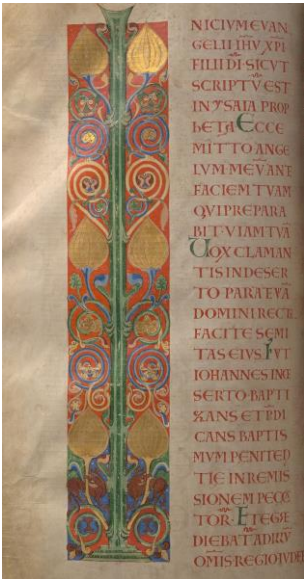 NICIVM EVAN
GELII IHV XPI
FILII DI SICVT
SCRIPTV EST
IN YSAIA PROP
HETA ECCE
MITTO ANGE
LVM MEV ANT
FACIEM TVAM
QVI PREPARA
BIT VIAM TVA
VOX CLAMAN
TIS IN DESER
TO PARATE VIA
DOMINI RECTE
FACITE SEMI
TAS EIVS FVT
IOHANNES IN
SERTO BAPTI
ZANS ET PDI
CANS BAPTIS
MVM PENITED
TIE IN REMIS
SIONEM PECC
TOR ET EGRE
DIEBAT AD ILLV
OMIS REGIO IVDE